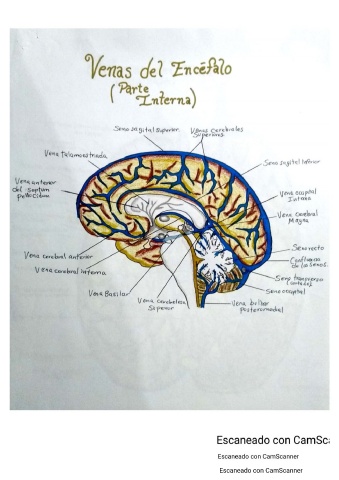 Venas del Encéfalo
(Parte
Interna)
Seno sagital superior.
Venas Cerebrales
Superiores
Vena talamoestriada
Seno sagital inferior
Vena anterior
del septum
pelúcido
Vena occipital
Interna
Vena cerebral
Magna
Vena cerebral anterior
Vena cerebral interna
Seno recto
Confluencia
de los senos.
Seno transverso
Seno occipital
Vena Basilar
Vena cerebelosa
Superior
Vena bulbar
Posteromedial
Escaneado con CamSca
Escaneado con CamScanner
Escaneado con CamScanner